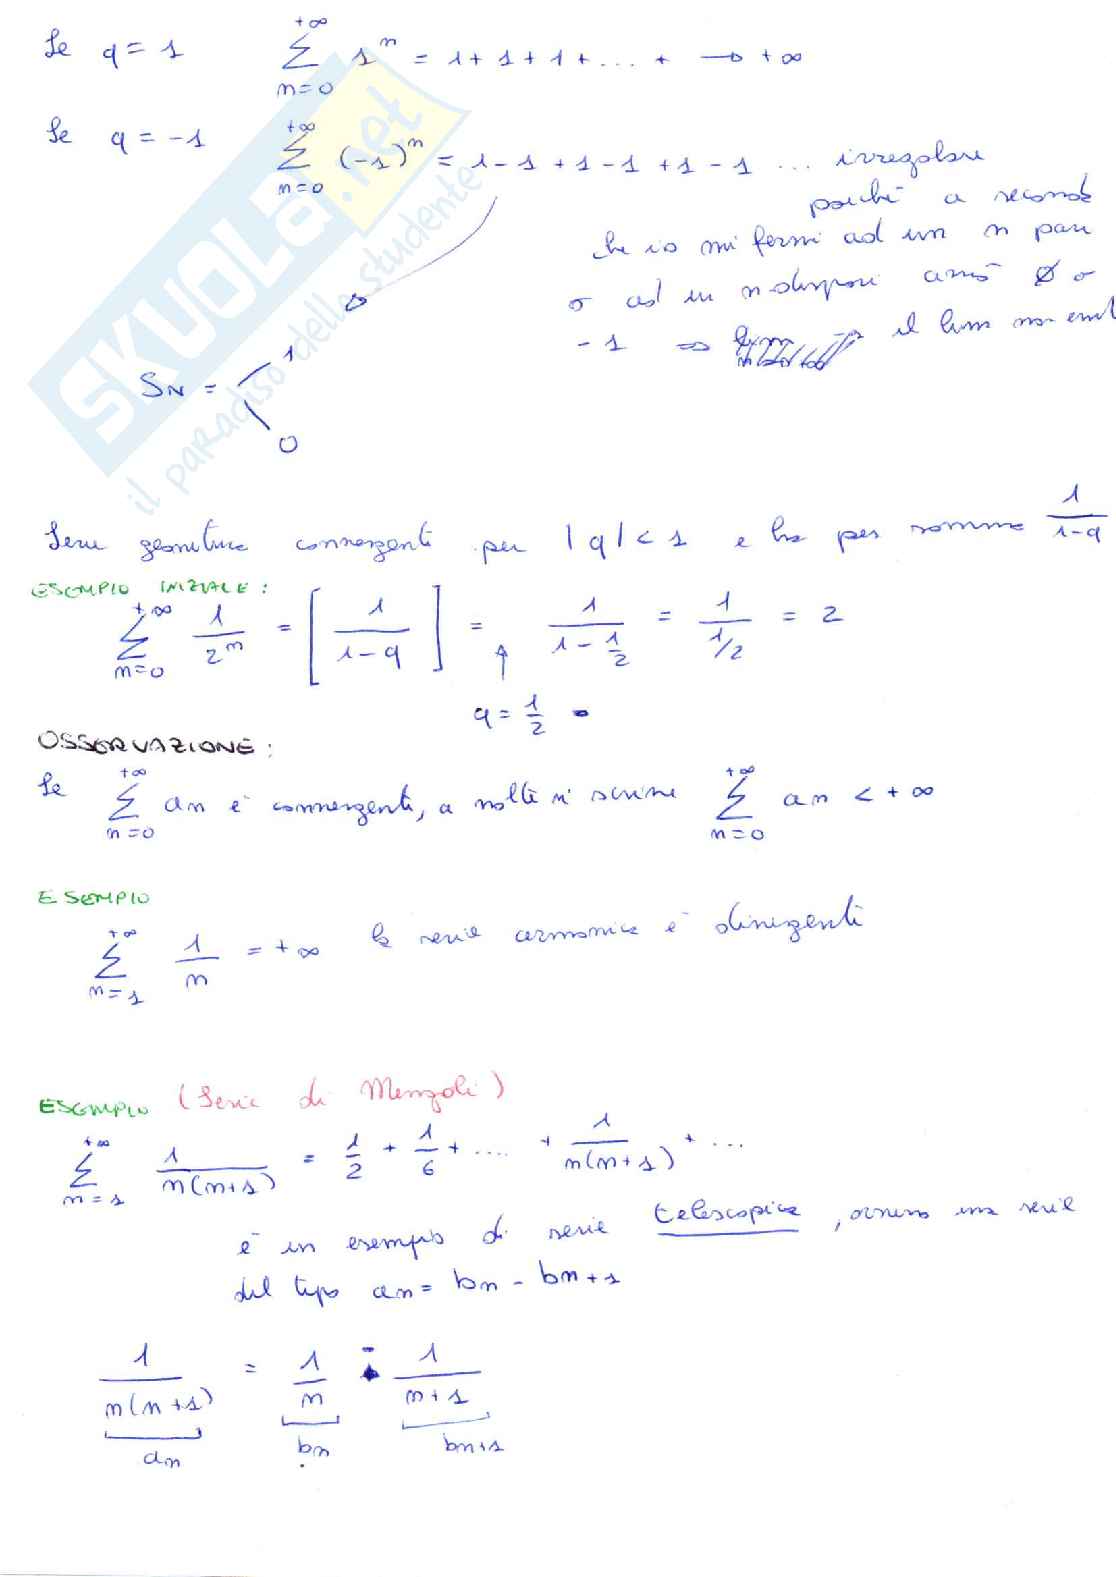 Se q = 1 \sum_{n=0}^{+∞} 1^n = 1 + 1 + 1 + ... + → +∞
Se q = -1 \sum_{n=0}^{+∞} (-1)^n = 1 - 1 + 1 - 1 + 1 - 1 ... irregolare
poiché a seconda
che io mi fermi ad un n pari
o ad un n dispari avrò Ø o
-1 ⇒ il lim non
S_N = 1
0
Serie geometrica convergente per |q| < 1 e ha per somma \frac{1}{1-q}
ESEMPIO INIZIALE:
\sum_{n=0}^{+∞} \frac{1}{2^n} = [\frac{1}{1-q}] = \frac{1}{1-\frac{1}{2}} = \frac{1}{1/2} = 2
↑
q = \frac{1}{2}
OSSERVAZIONE:
Se \sum_{n=0}^{+∞} an è convergente, a volte si scrive \sum_{n=0}^{+∞} an < +∞
ESEMPIO
\sum_{n=1}^{+∞} \frac{1}{n} = +∞ la serie armonica è divergente
ESEMPIO (Serie di Mengoli)
\sum_{n=1}^{+∞} \frac{1}{n(n+1)} = \frac{1}{2} + \frac{1}{6} + .... + \frac{1}{n(n+1)} + ...
è un esempio di serie telescopica, ovvero una serie
del tipo an = bn - bn+1
\frac{1}{n(n+1)} = \frac{1}{n} - \frac{1}{n+1}
an bn bn+1
SKUOLA.net
il paradiso dello studente